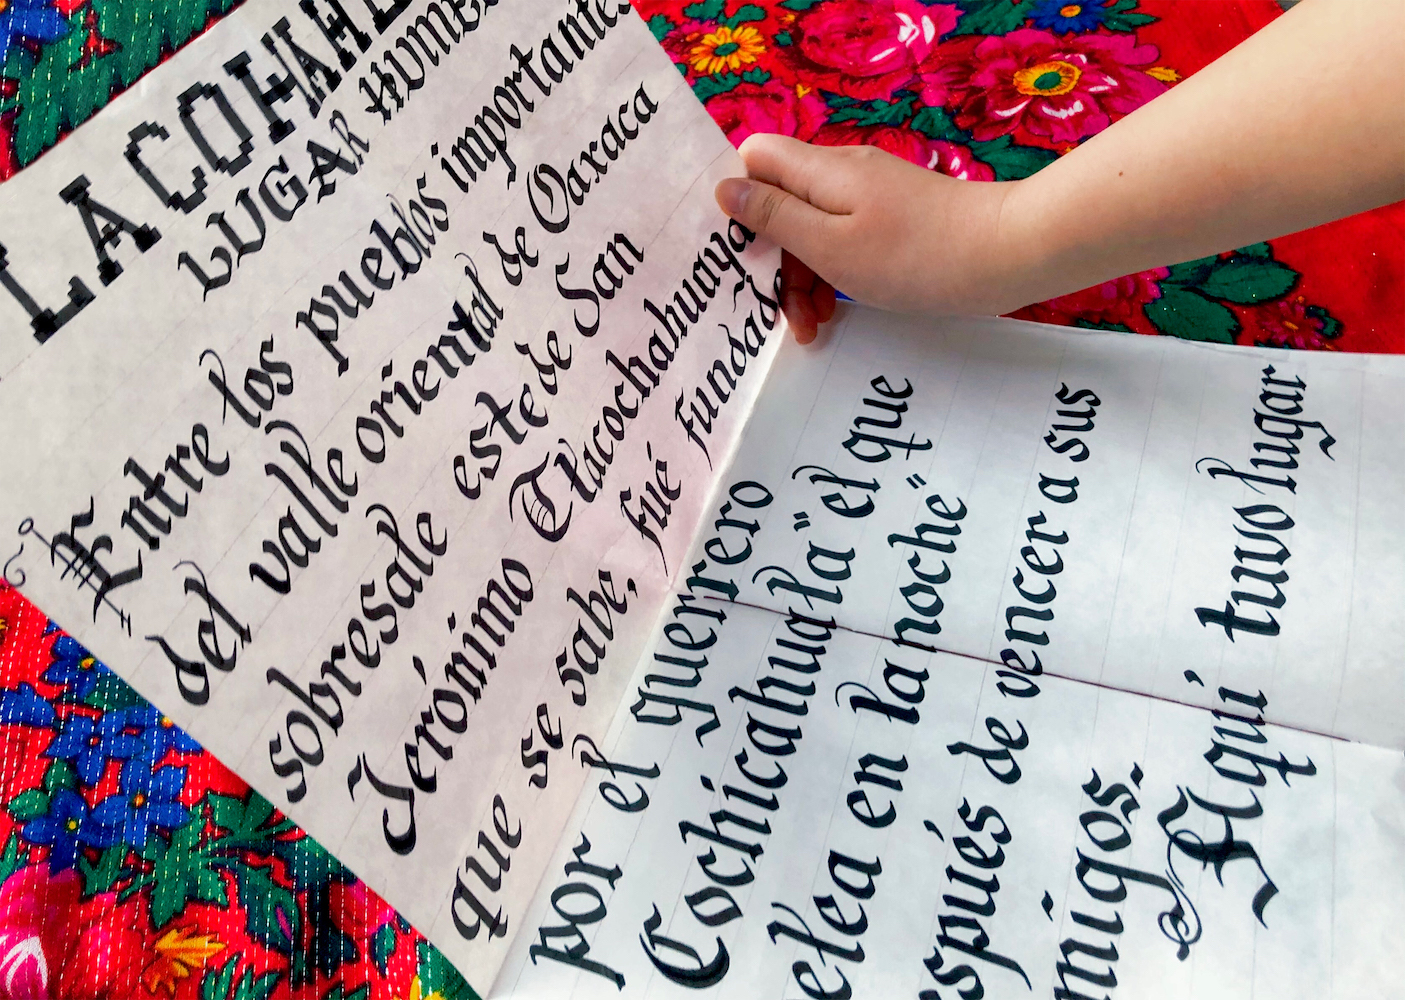 LA
LUGAR
Entre los pueblos importantes
del valle oriental de Oaxaca
sobresale este de San
Jerónimo Tlacochahuaya
que se sabe, fué fundad
por el guerrero
Cochicahuala "el que
elea en la noche"
espués de vencer a sus
migos.
Aquí tuvo lugar